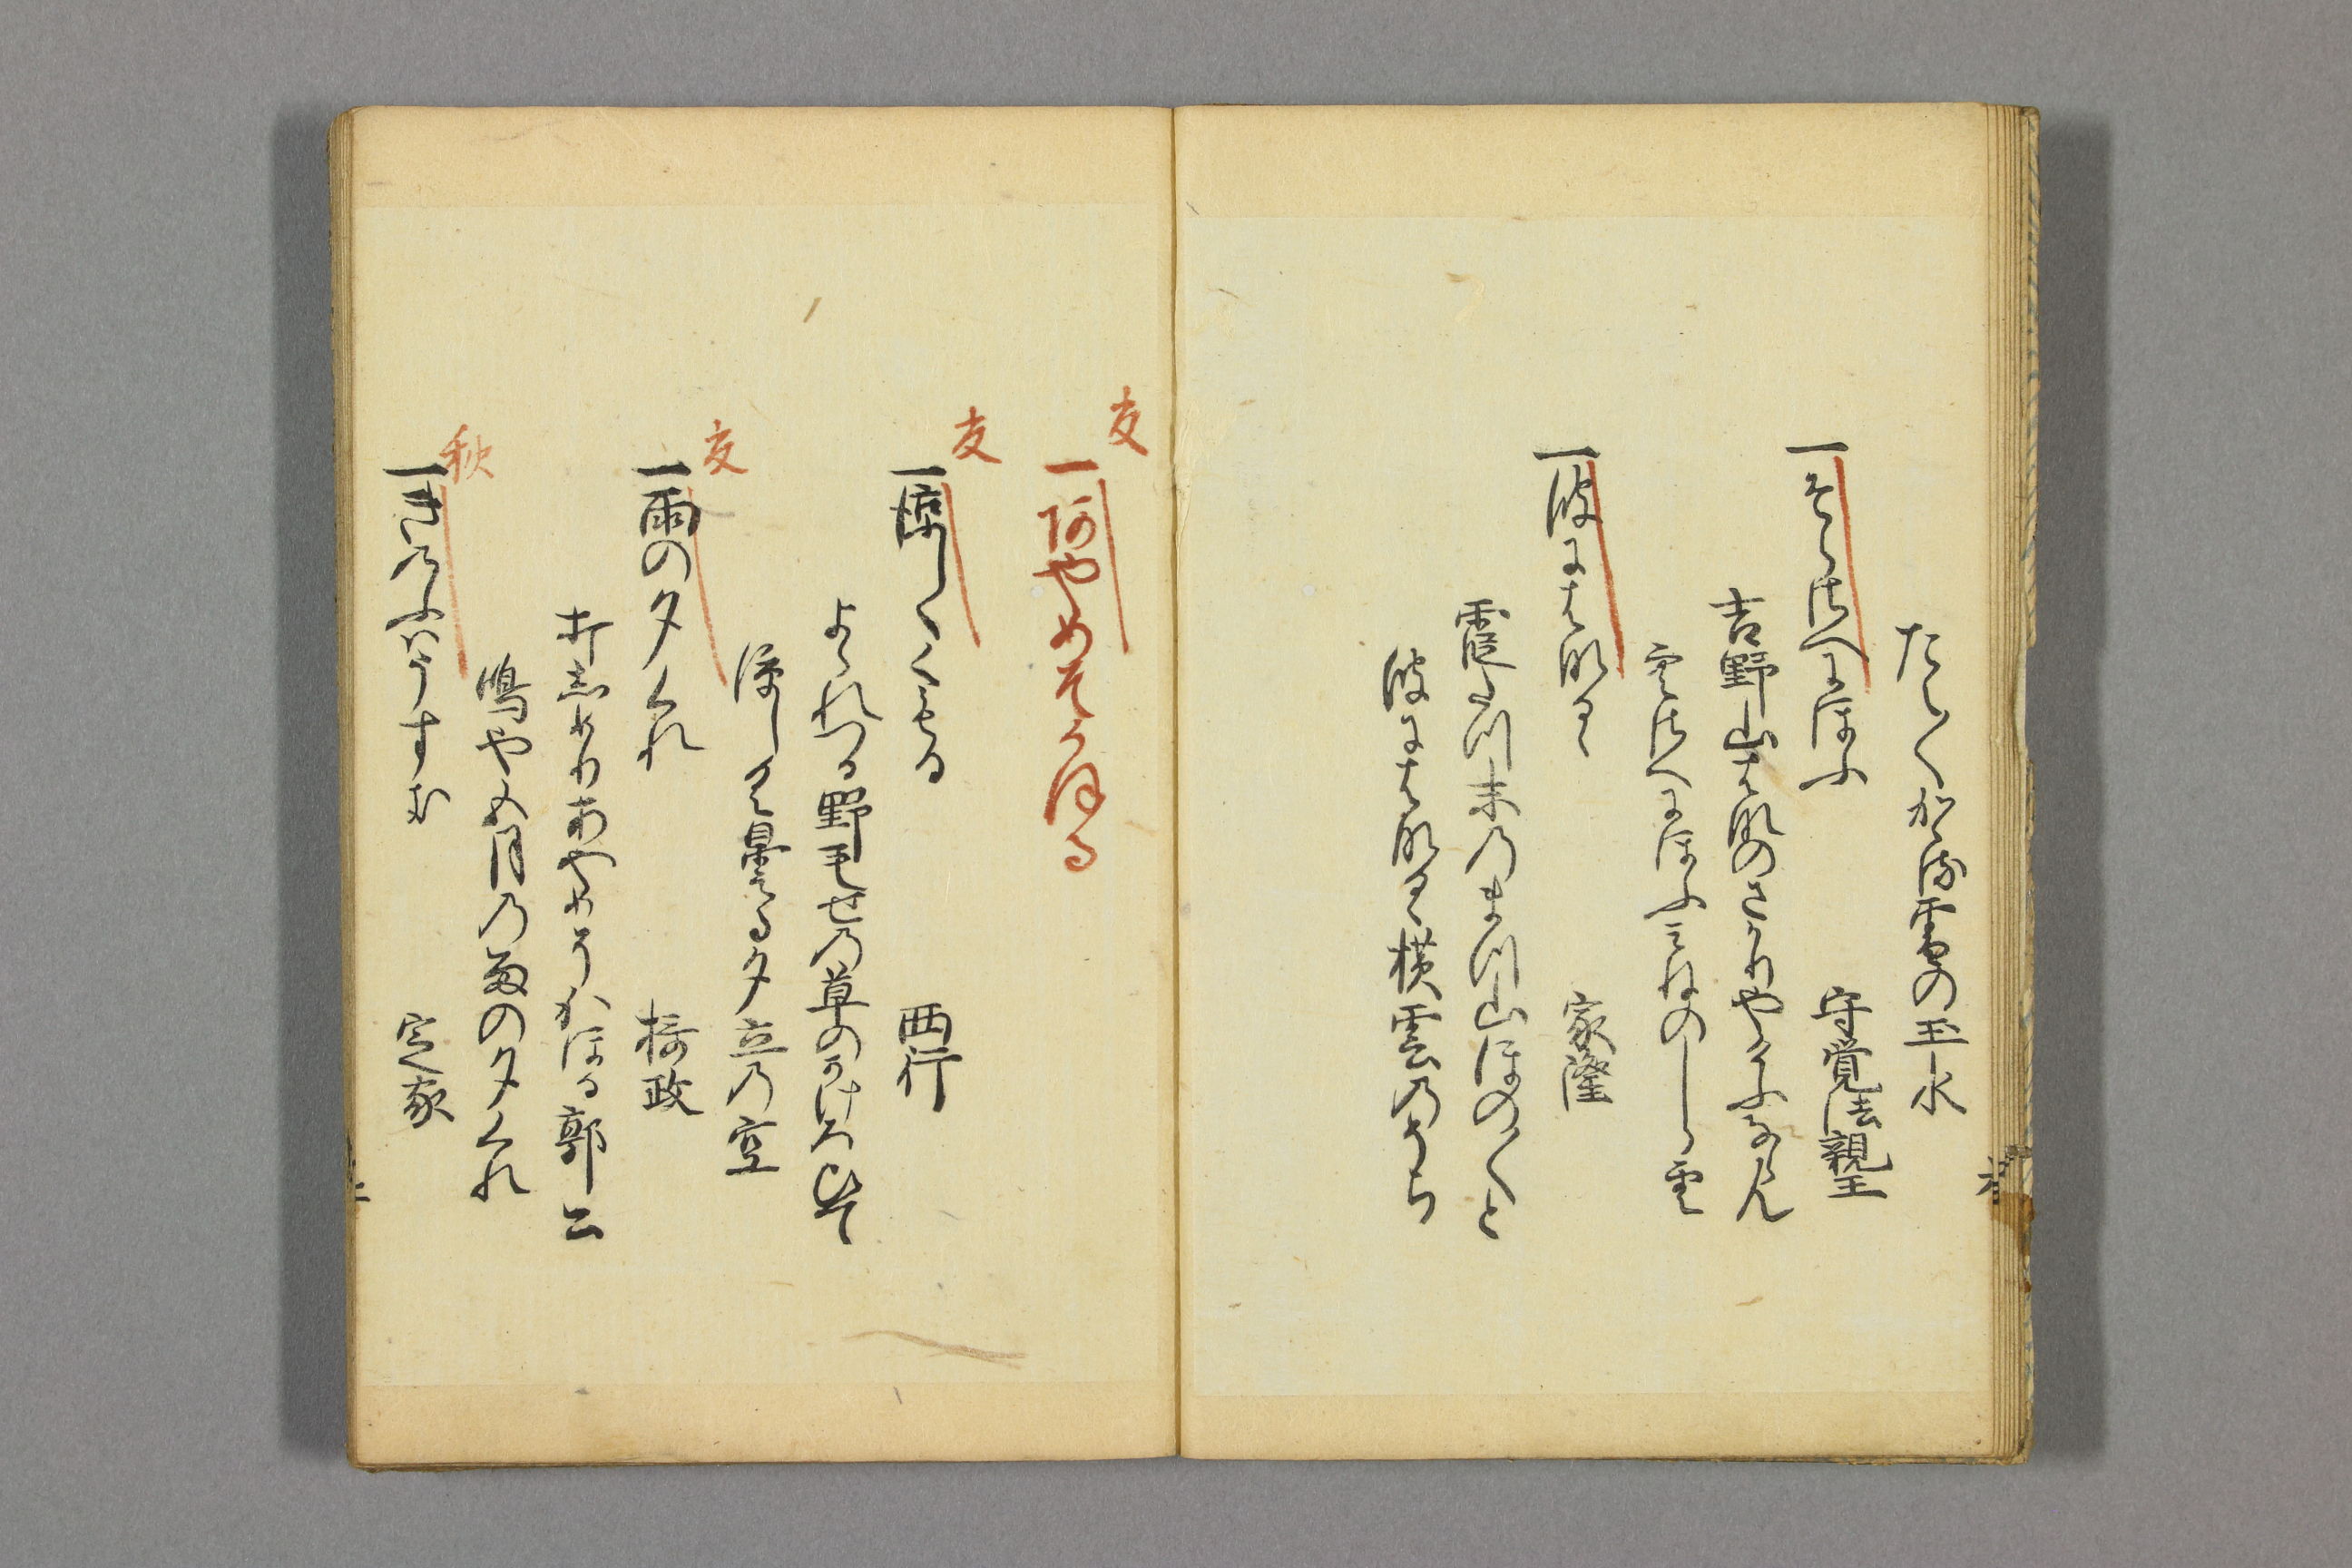 たえ〳〵かゝる雪の玉水
一そらさへにほふ　守覚法親王
吉野山はなのさかりやけふならん
空さへにほふみねのしら雲
一波にはなるゝ　家隆
霞たつ末のまつ山ほの〳〵と
波にはなるゝ横雲のそら
夏
一阿やめそかほる
夏
一涼しくくもる　西行
よられつる野もせの草のかけろひて
涼しくゝもる夕立の空
夏
一雨の夕くれ　摂政
打しめりあやめそかほる郭公
鳴や五月の雨の夕くれ
秋
一きのふハうすき　定家